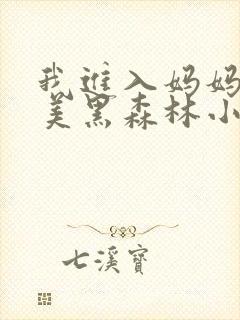 我進入妈妈
美黑森林小
七溪寶